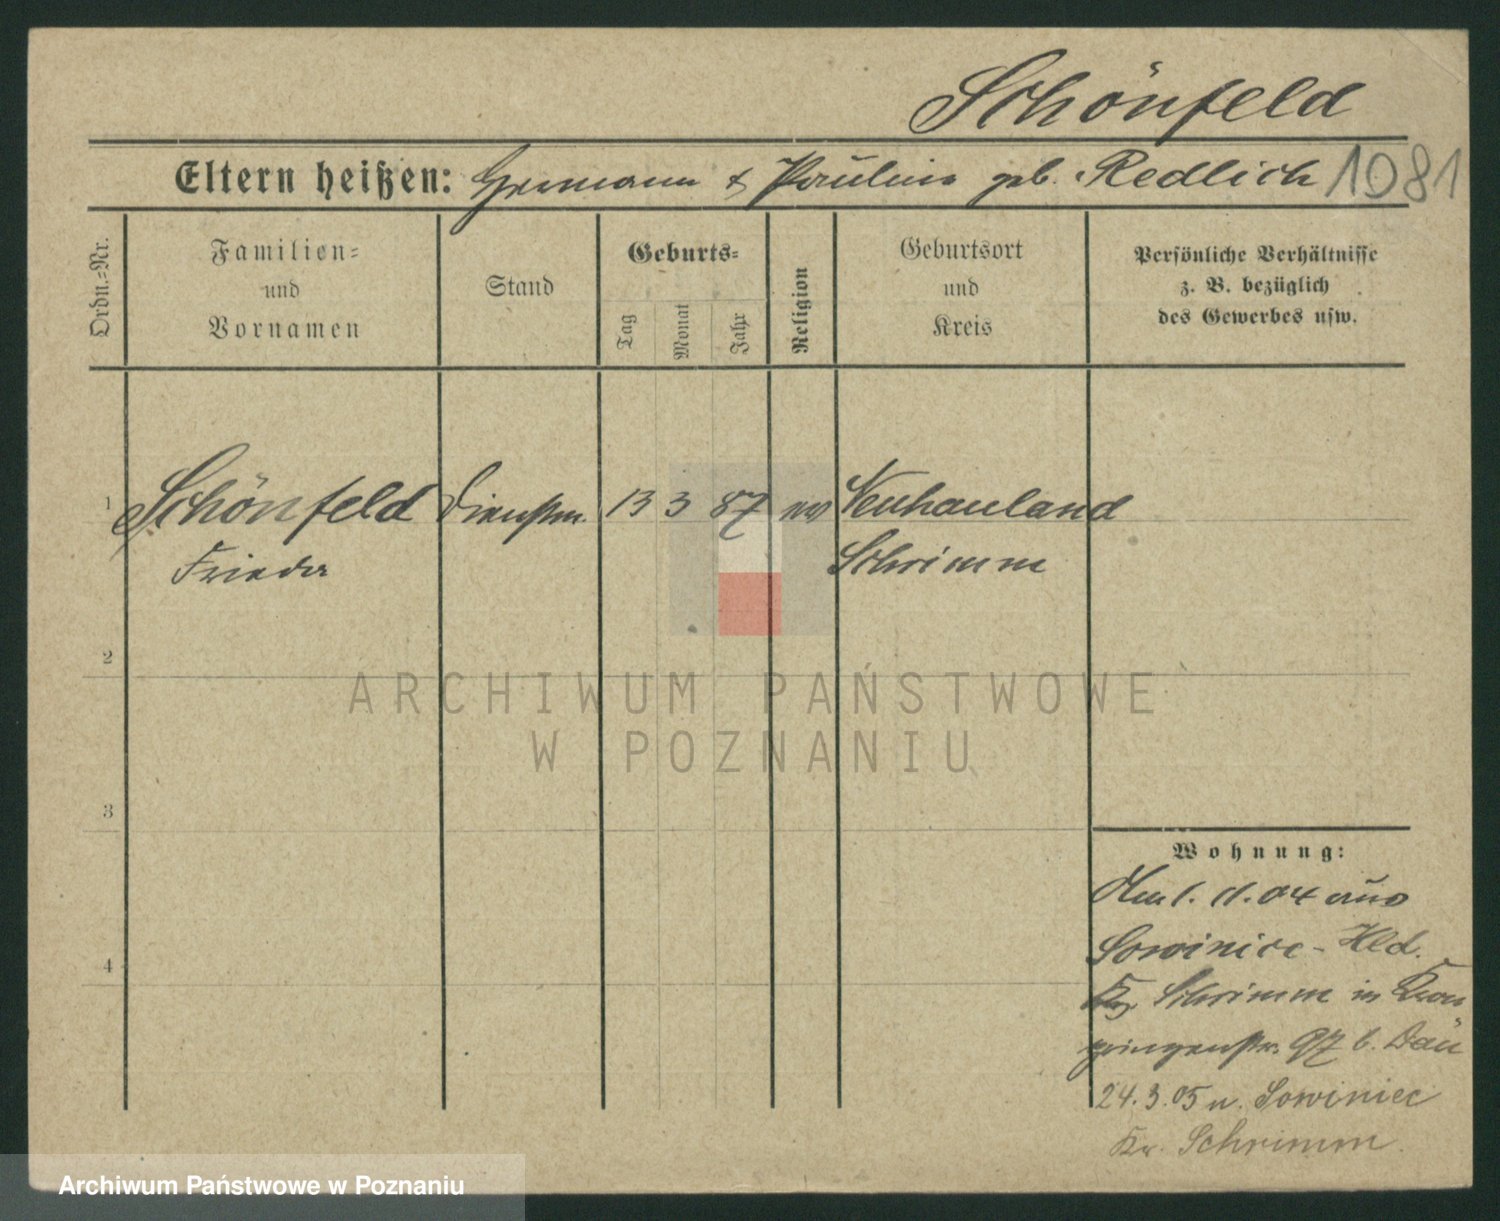 Schönfeld
Eltern heißen: Hermann & Pauline geb. Redlich 1081
Ordn.-Nr.
Familien-
und
Vornamen
Stand
Geburts-
Tag
Monat
Jahr
Religion
Geburtsort
und
Kreis
Persönliche Verhältnisse
z. B. bezüglich
des Gewerbes usw.
1 Schönfeld Dienstm. 13 3 87 ev Neuhauland
Frieda Schrimm
2
3
4
Wohnung:
1. 11. 04 aus
Sowiniec - Hld.
Schrimm in Kron
prinzenstr. 97 b.
24. 3. 05 n. Sowiniec
Kr. Schrimm.
ARCHIWUM PAŃSTWOWE
W POZNANIU
Archiwum Państwowe w Poznaniu